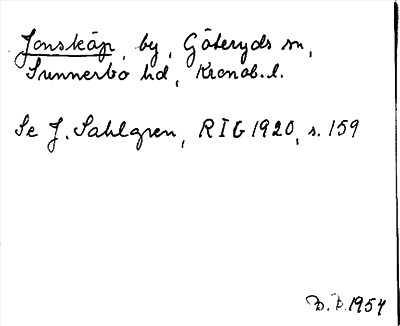 Jonskäp, by, Göteryds sn,
Sunnerbo hd, Kronob. l.
Se J. Sahlgren, RIG 1920, s. 159
B. P. 1954